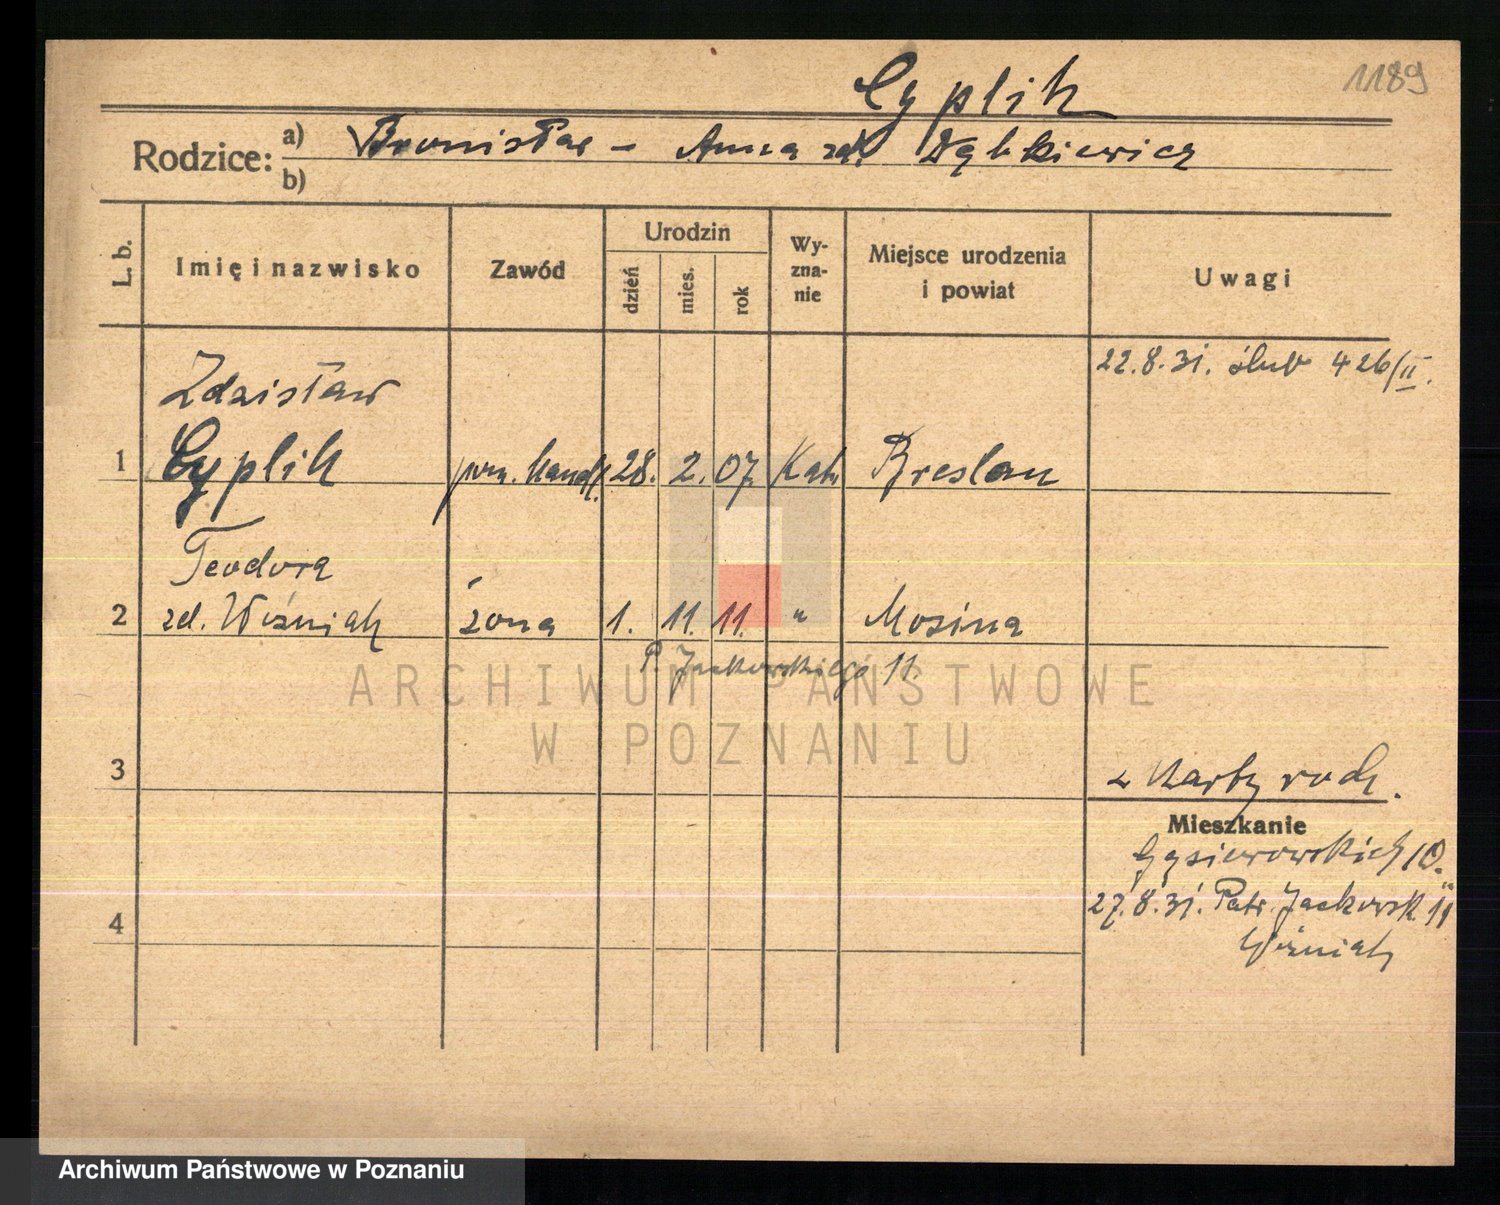 1189
Cyplik
Rodzice: a) Bronisław - Anna zd. Dąbkiewicz
b)
L. b. Imię i nazwisko Zawód Urodzin dzień mies. rok Wy-zna-nie Miejsce urodzenia i powiat Uwagi
22.8.31. ślub 426/II.
Zdzisław
1 Cyplik pom. handl. 28. 2. 07. Kat. Breslau
Teodora
2 zd. Woźniak żona 1. 11. 11. " Mosina
P. Jackowskiego 11.
ARCHIWUM PAŃSTWOWE
W POZNANIU
3 z Karty rodz.
Mieszkanie
Gąsiorowskich 10.
27.8.31. Patr. Jackowsk 11
4
Woźniak
Archiwum Państwowe w Poznaniu